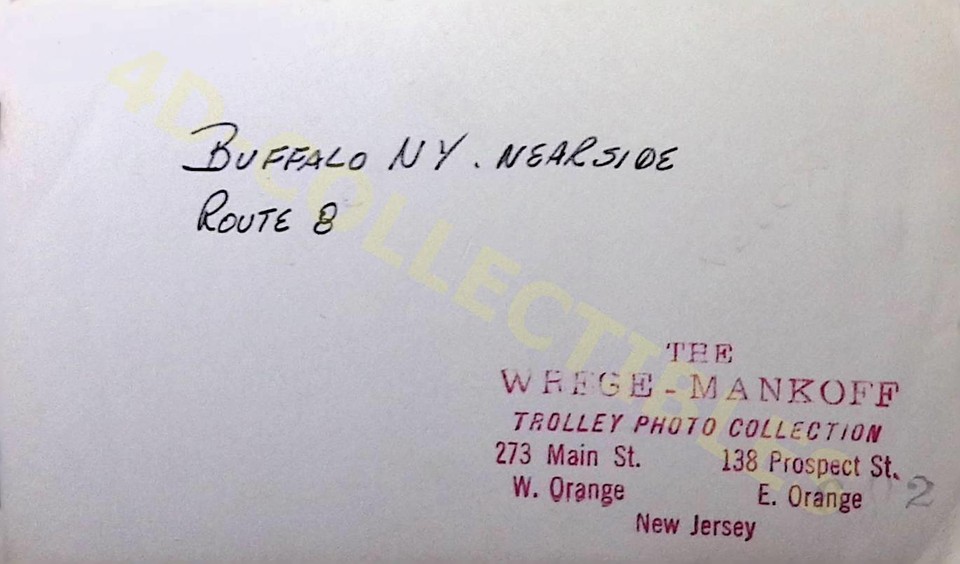 BUFFALO NY. NEARSIDE
ROUTE 8
4D-COLLECTIBLES
THE
WREGE - MANKOFF
TROLLEY PHOTO COLLECTION
273 Main St. 138 Prospect St.
W. Orange E. Orange
New Jersey